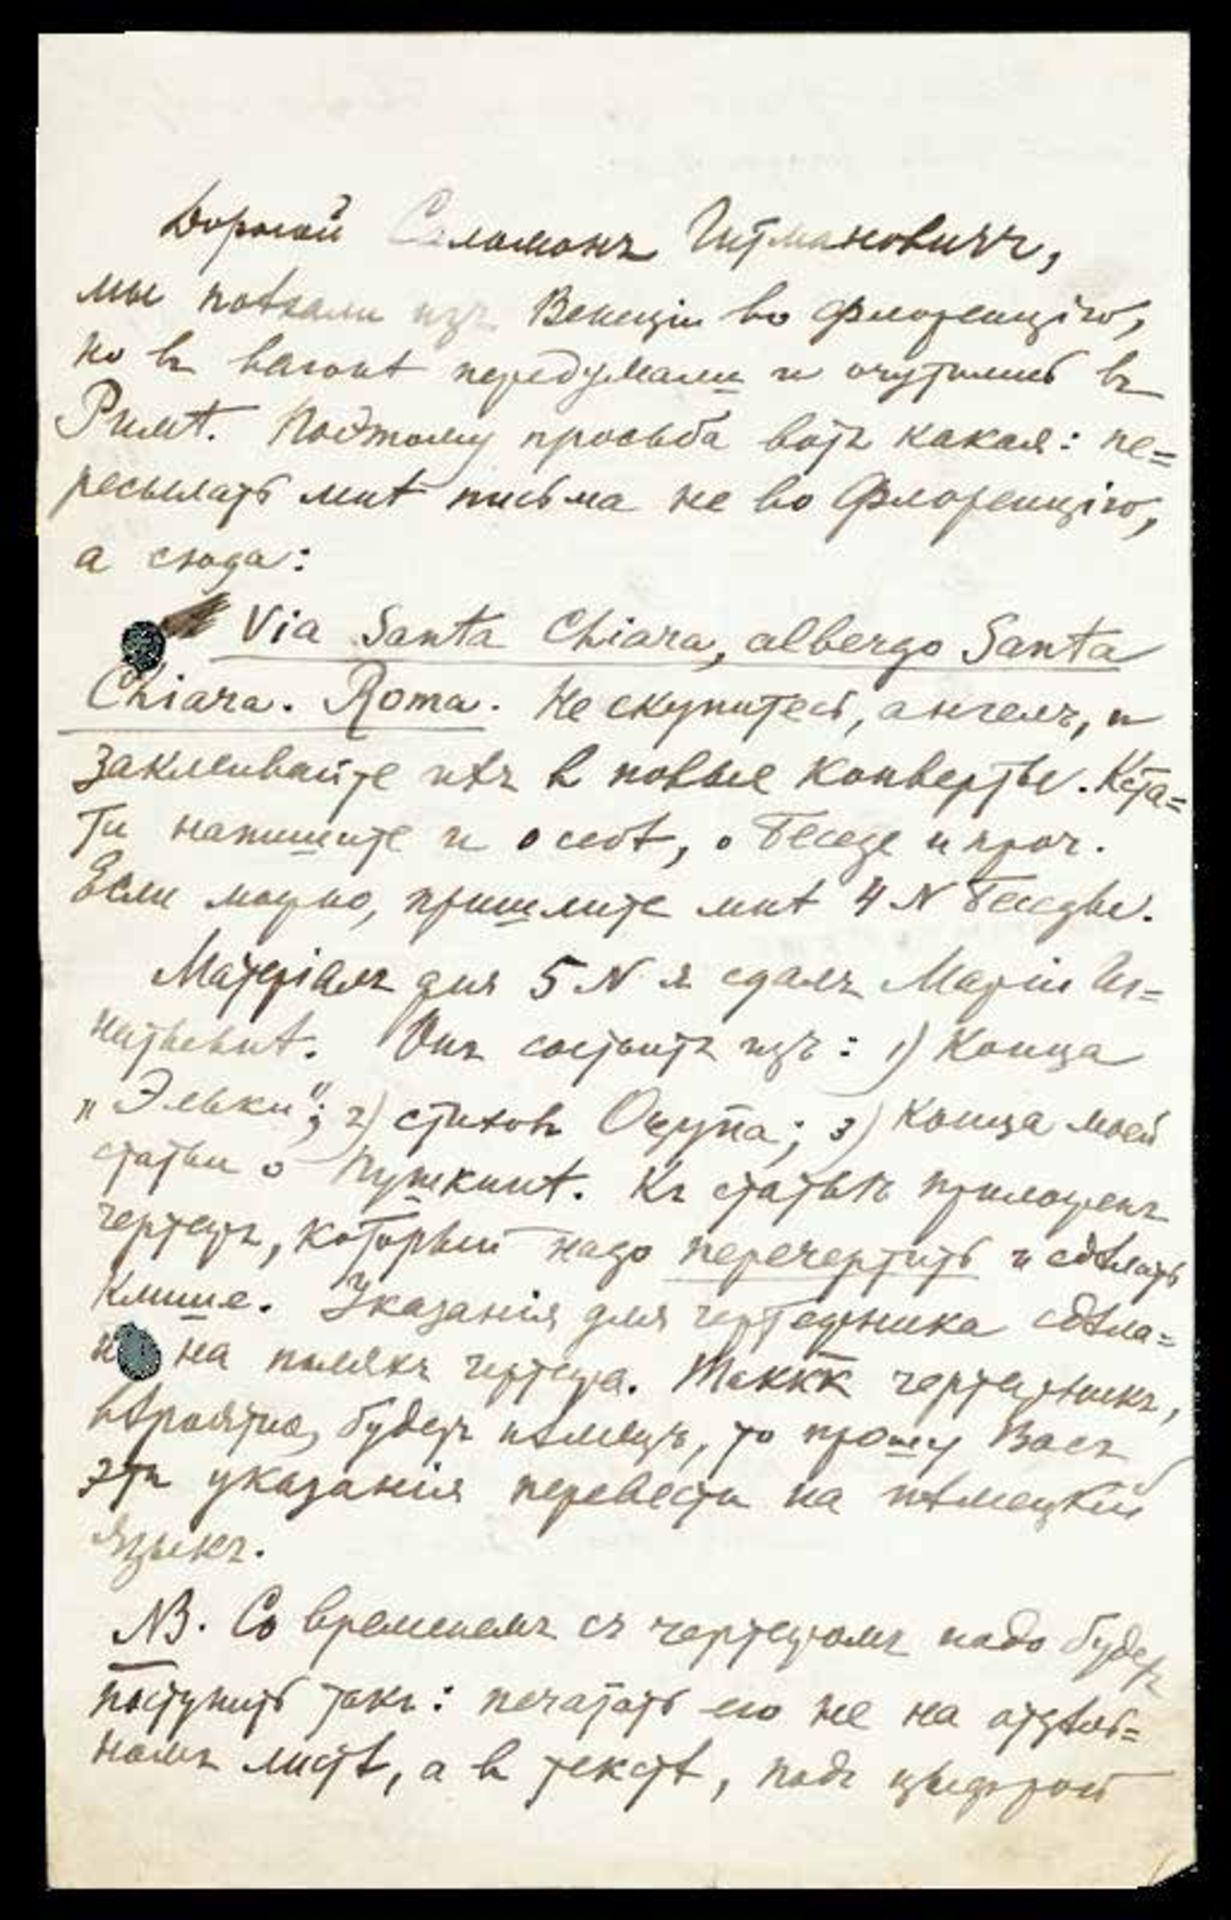 Дорогой Соломонъ Гитмановичъ,
мы поѣхали изъ Венеціи во Флоренцію,
но въ вагонѣ передумали и очутились въ
Римѣ. Поэтому просьба вотъ какая: пе=
ресылать мнѣ письма не во Флоренцію,
а сюда:
Via Santa Chiara, albergo Santa
Chiara. Roma. Не скупитесь, ангелъ, и
заклеивайте ихъ в новые конверты. Кста=
ти напишите и о себѣ, о Беседе и проч.
Если можно, пришлите мнѣ 4 N Беседы.
Матеріалъ для 5 N я сдалъ Маріи Иг=
натьевнѣ. Онъ состоитъ изъ: 1) Конца
„Эльки"; 2) стиховъ Оцупа; 3) Конца моей
статьи о Пушкинѣ. Къ статьѣ приложенъ
чертежъ, который надо перечертить и сдѣлать
клише. Указанія для чертежника сдѣла=
н на поляхъ чертежа. Такъкакъ чертежникъ,
вѣроятно, будетъ нѣмецъ, то прошу Васъ
эти указанія перевести на нѣмецкій
языкъ.
NB. Со временемъ съ чертежомъ надо будетъ
поступить такъ: печатать его не на отдѣль=
номъ листѣ, а въ текстѣ, подъ цыфрой